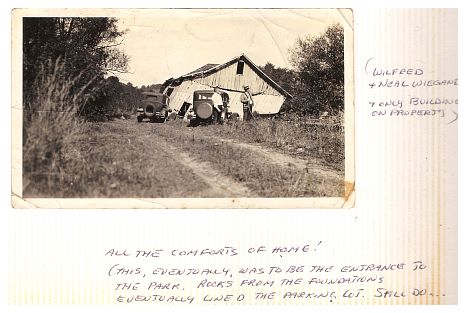 (WILFRED
+ NEAL WIEGAND
+ ONLY BUILDING
ON PROPERTY)
ALL THE COMFORTS OF HOME!
(THIS, EVENTUALLY, WAS TO BE THE ENTRANCE TO
THE PARK. ROCKS FROM THE FOUNDATIONS
EVENTUALLY LINED THE PARKING LOT. STILL DO...